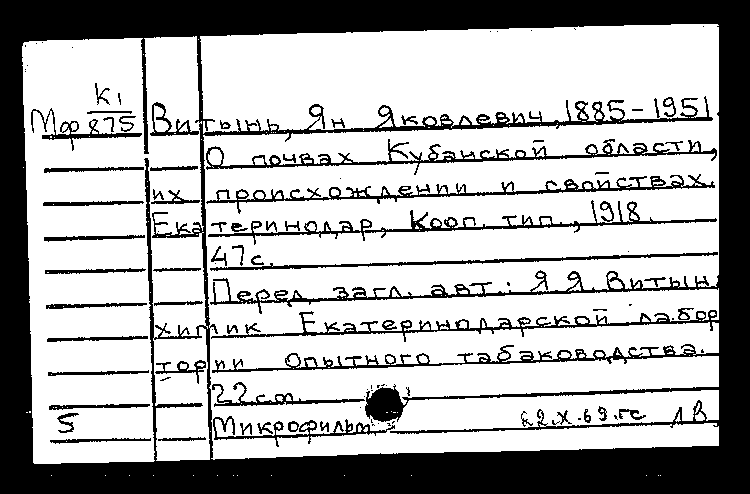 Мф К1/875 Витынь, Ян Яковлевич, 1885-1951.
О почвах Кубанской области,
их происхождении и свойствах.
Екатеринодар, Кооп. тип., 1918.
47с.
Перед загл. авт.: Я.Я. Витынь
химик Екатеринодарской лабор
тории опытного табаководства.
22см.
5 Микрофильм 22.X.69.гс ЛВ.